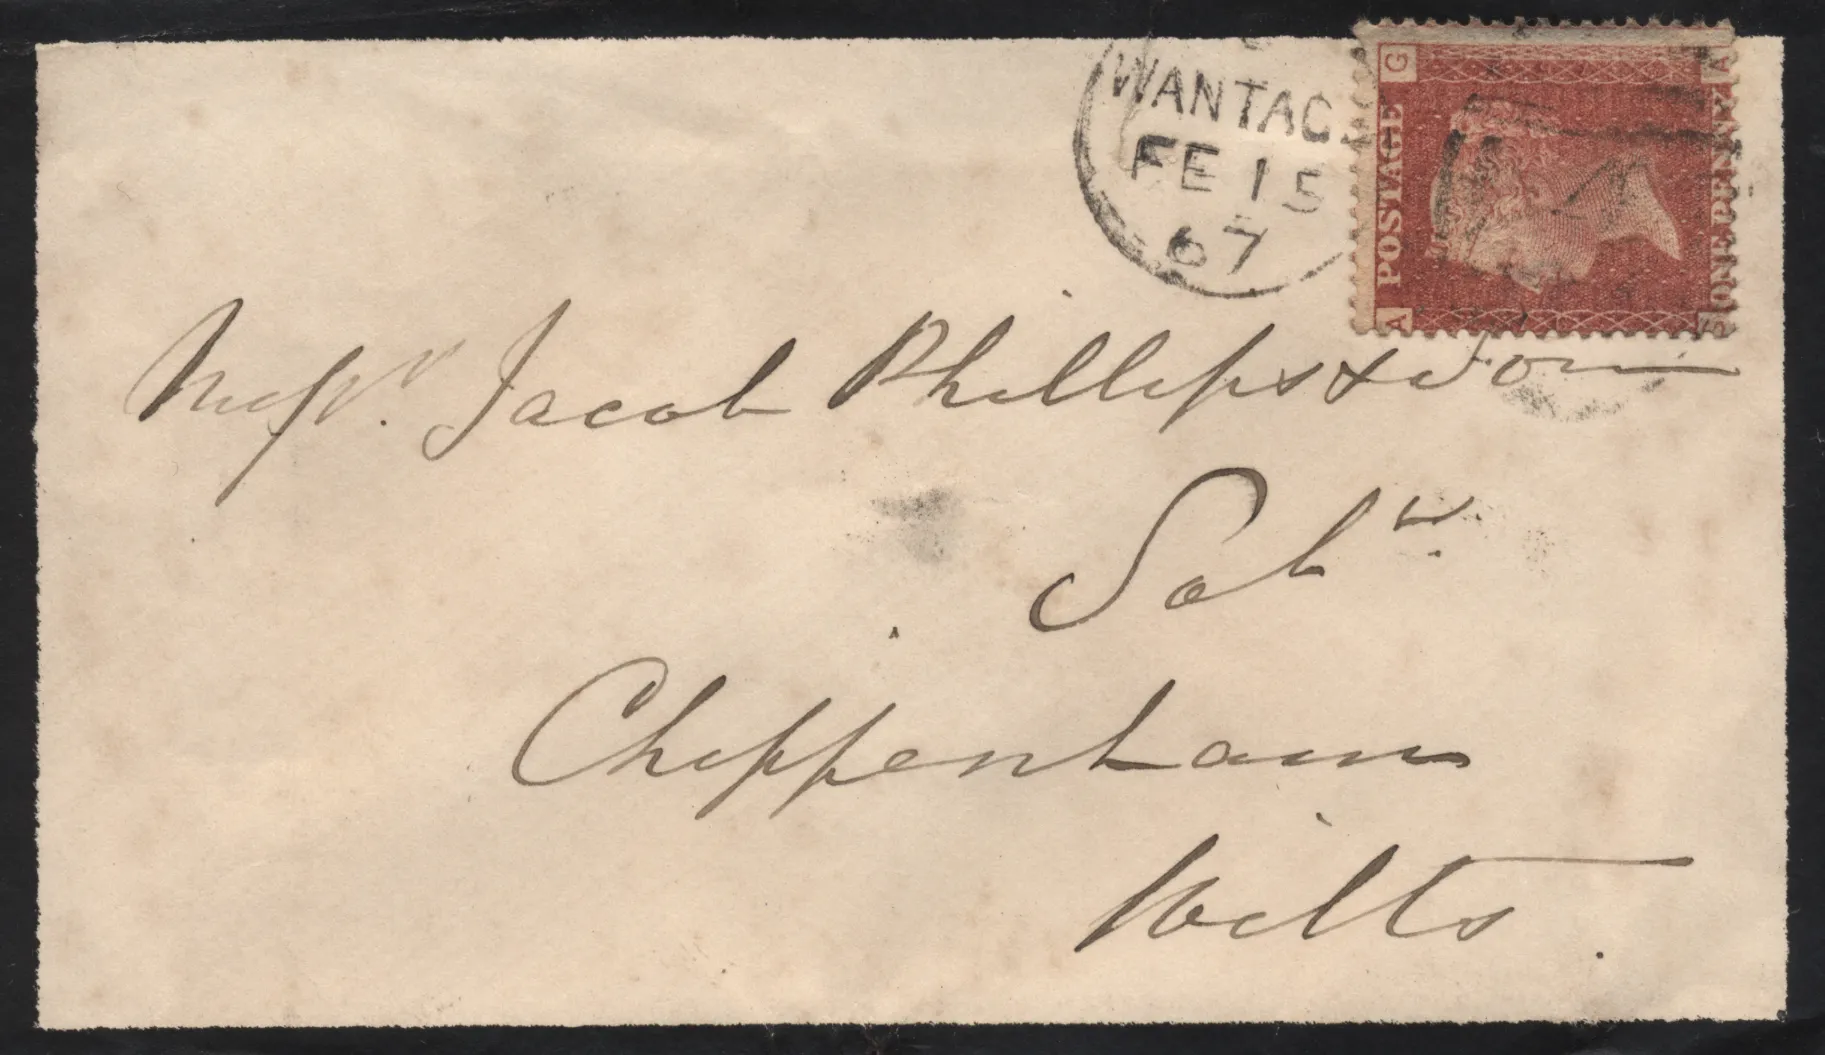 WANTAG
FE 15
67
G A
POSTAGE
ONE PENNY
A G
Messrs. Jacob Phillips & Son
Solrs.
Chippenham
Wilts